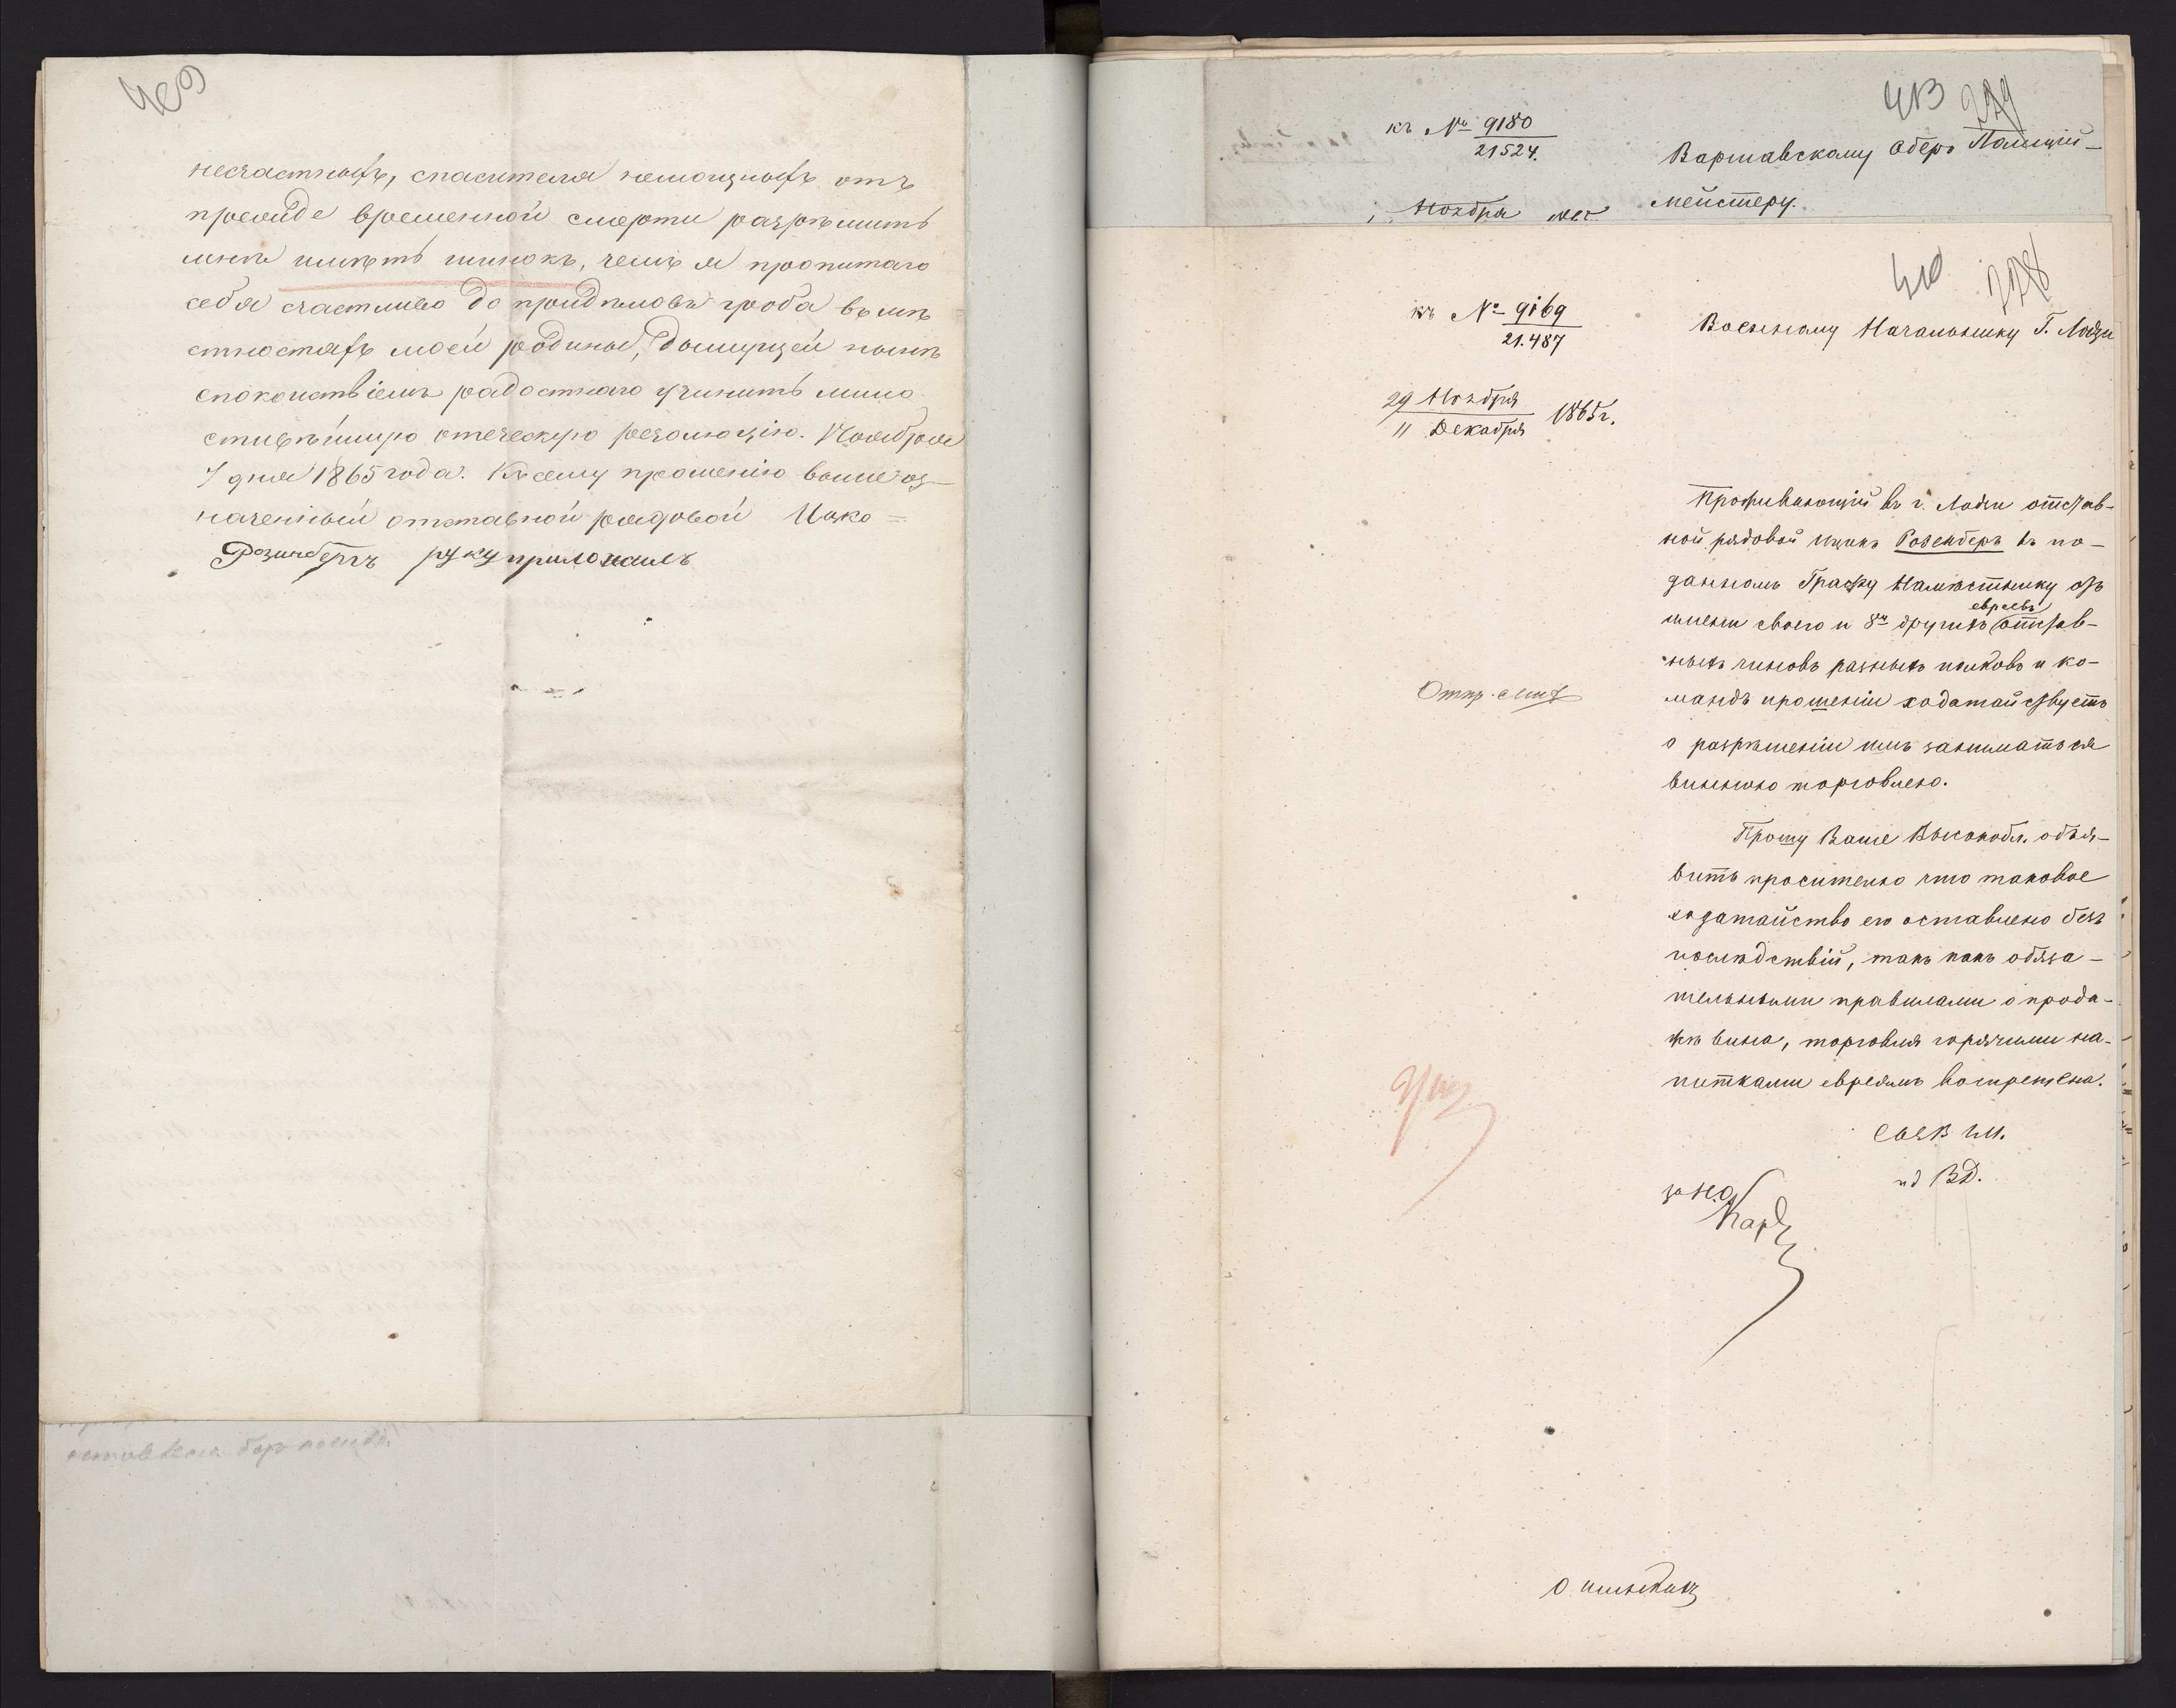 409
несчастныхъ, спасителя немощныхъ отъ
прежде временной смерти разрѣшить
мнѣ имѣть шинокъ, чемъ я пропитаю
себя счастливо до придѣловъ гроба въ мѣ
стностяхъ моей родины, дышущей нынѣ
спокойствіемъ радостнаго учинить мило
стивѣйшую отеческую резолюцію. Ноября
7 дня 1865 года. Къ сему прошенію вышеоз-
наченный отставной рядовой Ицко =
Розинбергъ руку приложилъ
оставлена безъ послѣд.
413
къ № 9180
21524.
Варшавскому Оберъ Полицій-
мейстеру.
Ноября
410 228
къ № 9169
21.487
Военному Начальнику Г. Лодзи
29 Ноября
11 Декабря 1865 г.
Проживающій въ г. Лодзи отстав-
ной рядовой Ицекъ Розенберъ въ по-
данномъ Графу Намѣстнику отъ
имени своего и 8м другихъ отстав-
евреевъ
ныхъ чиновъ разныхъ полковъ и ко-
мандъ прошеніи ходатайствуетъ
о разрѣшеніи имъ заниматься
винною торговлею.
Прошу Ваше Высокобл. объя-
вить просителю что таковое
ходатайство его оставлено безъ
послѣдствій, такъ какъ обяза-
тельными правилами о прода-
жѣ вина, торговля горячими на-
питками евреямъ воспрещена.
и д ВД.
за Н.О.